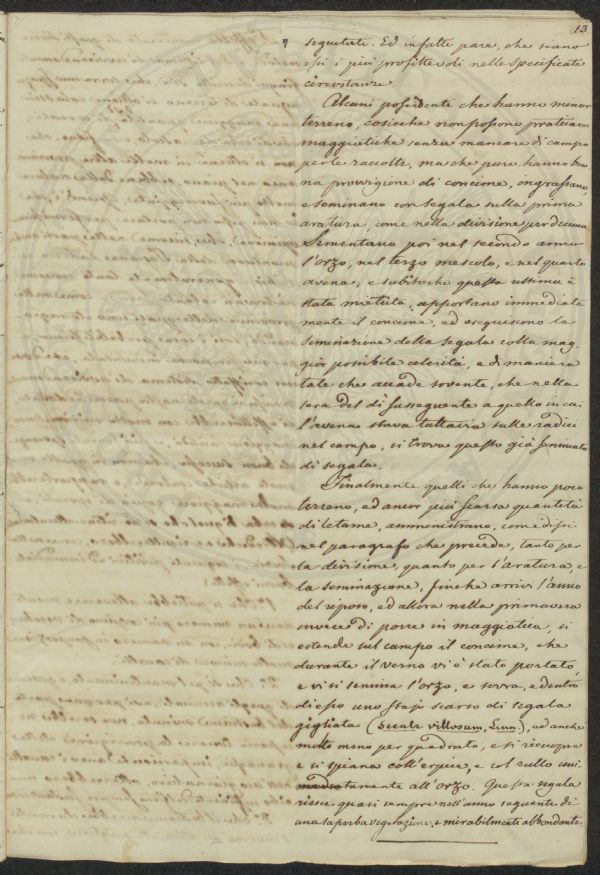 13
seguitate. Ed infatti pare, che siano
essi i più profittevoli nelle specificate
circostanze.
Alcuni possidenti che hanno minor
terreno, cosicchè non possono praticare
maggiatiche senza mancare di campo
per le raccolte, ma che pure hanno buo
na provvigione di concime, ingrassano,
e seminano con segala sulla prima
aratura, come nella divisione
Sementano poi nel secondo anno
l'orzo, nel terzo mescolo, e nel quarto
avena; e subitochè questa ultima è
stata mietuta, apportano immediata
mente il concime, ed eseguiscono la
seminazione della segala colla mag-
gior possibile celerità, e di maniera
tale che accade sovente, che nella
sera del dì susseguente a quello in cui
l'avena stava tuttavia sulle radici
nel campo, si trova questo già seminato
di segala.
Finalmente quelli che hanno poco
terreno, ed ancor più scarsa quantità
di letame, amministrano, come dissi
nel paragrafo che precede, tanto per
la divisione, quanto per l'aratura, e
la seminazione, finchè arrivi l'anno
del reposo, ed allora nella primavera
invece di porre in maggiatica, si
estende sul campo il concime, che
durante il verno vi è stato portato
e vi si semina l'orzo, e sovra, e dentro
di esso uno stajo scarso di segala
gigliata (Secale villosum, Linn.), ed anche
molto meno per quadrato, e si ricuopre
e si spiana coll'erpice, e col rullo uni
tamente all'orzo. Questa segala
riesce quasi sempre nell'anno seguente di
una superba vegetazione, e mirabilmente abbondante.